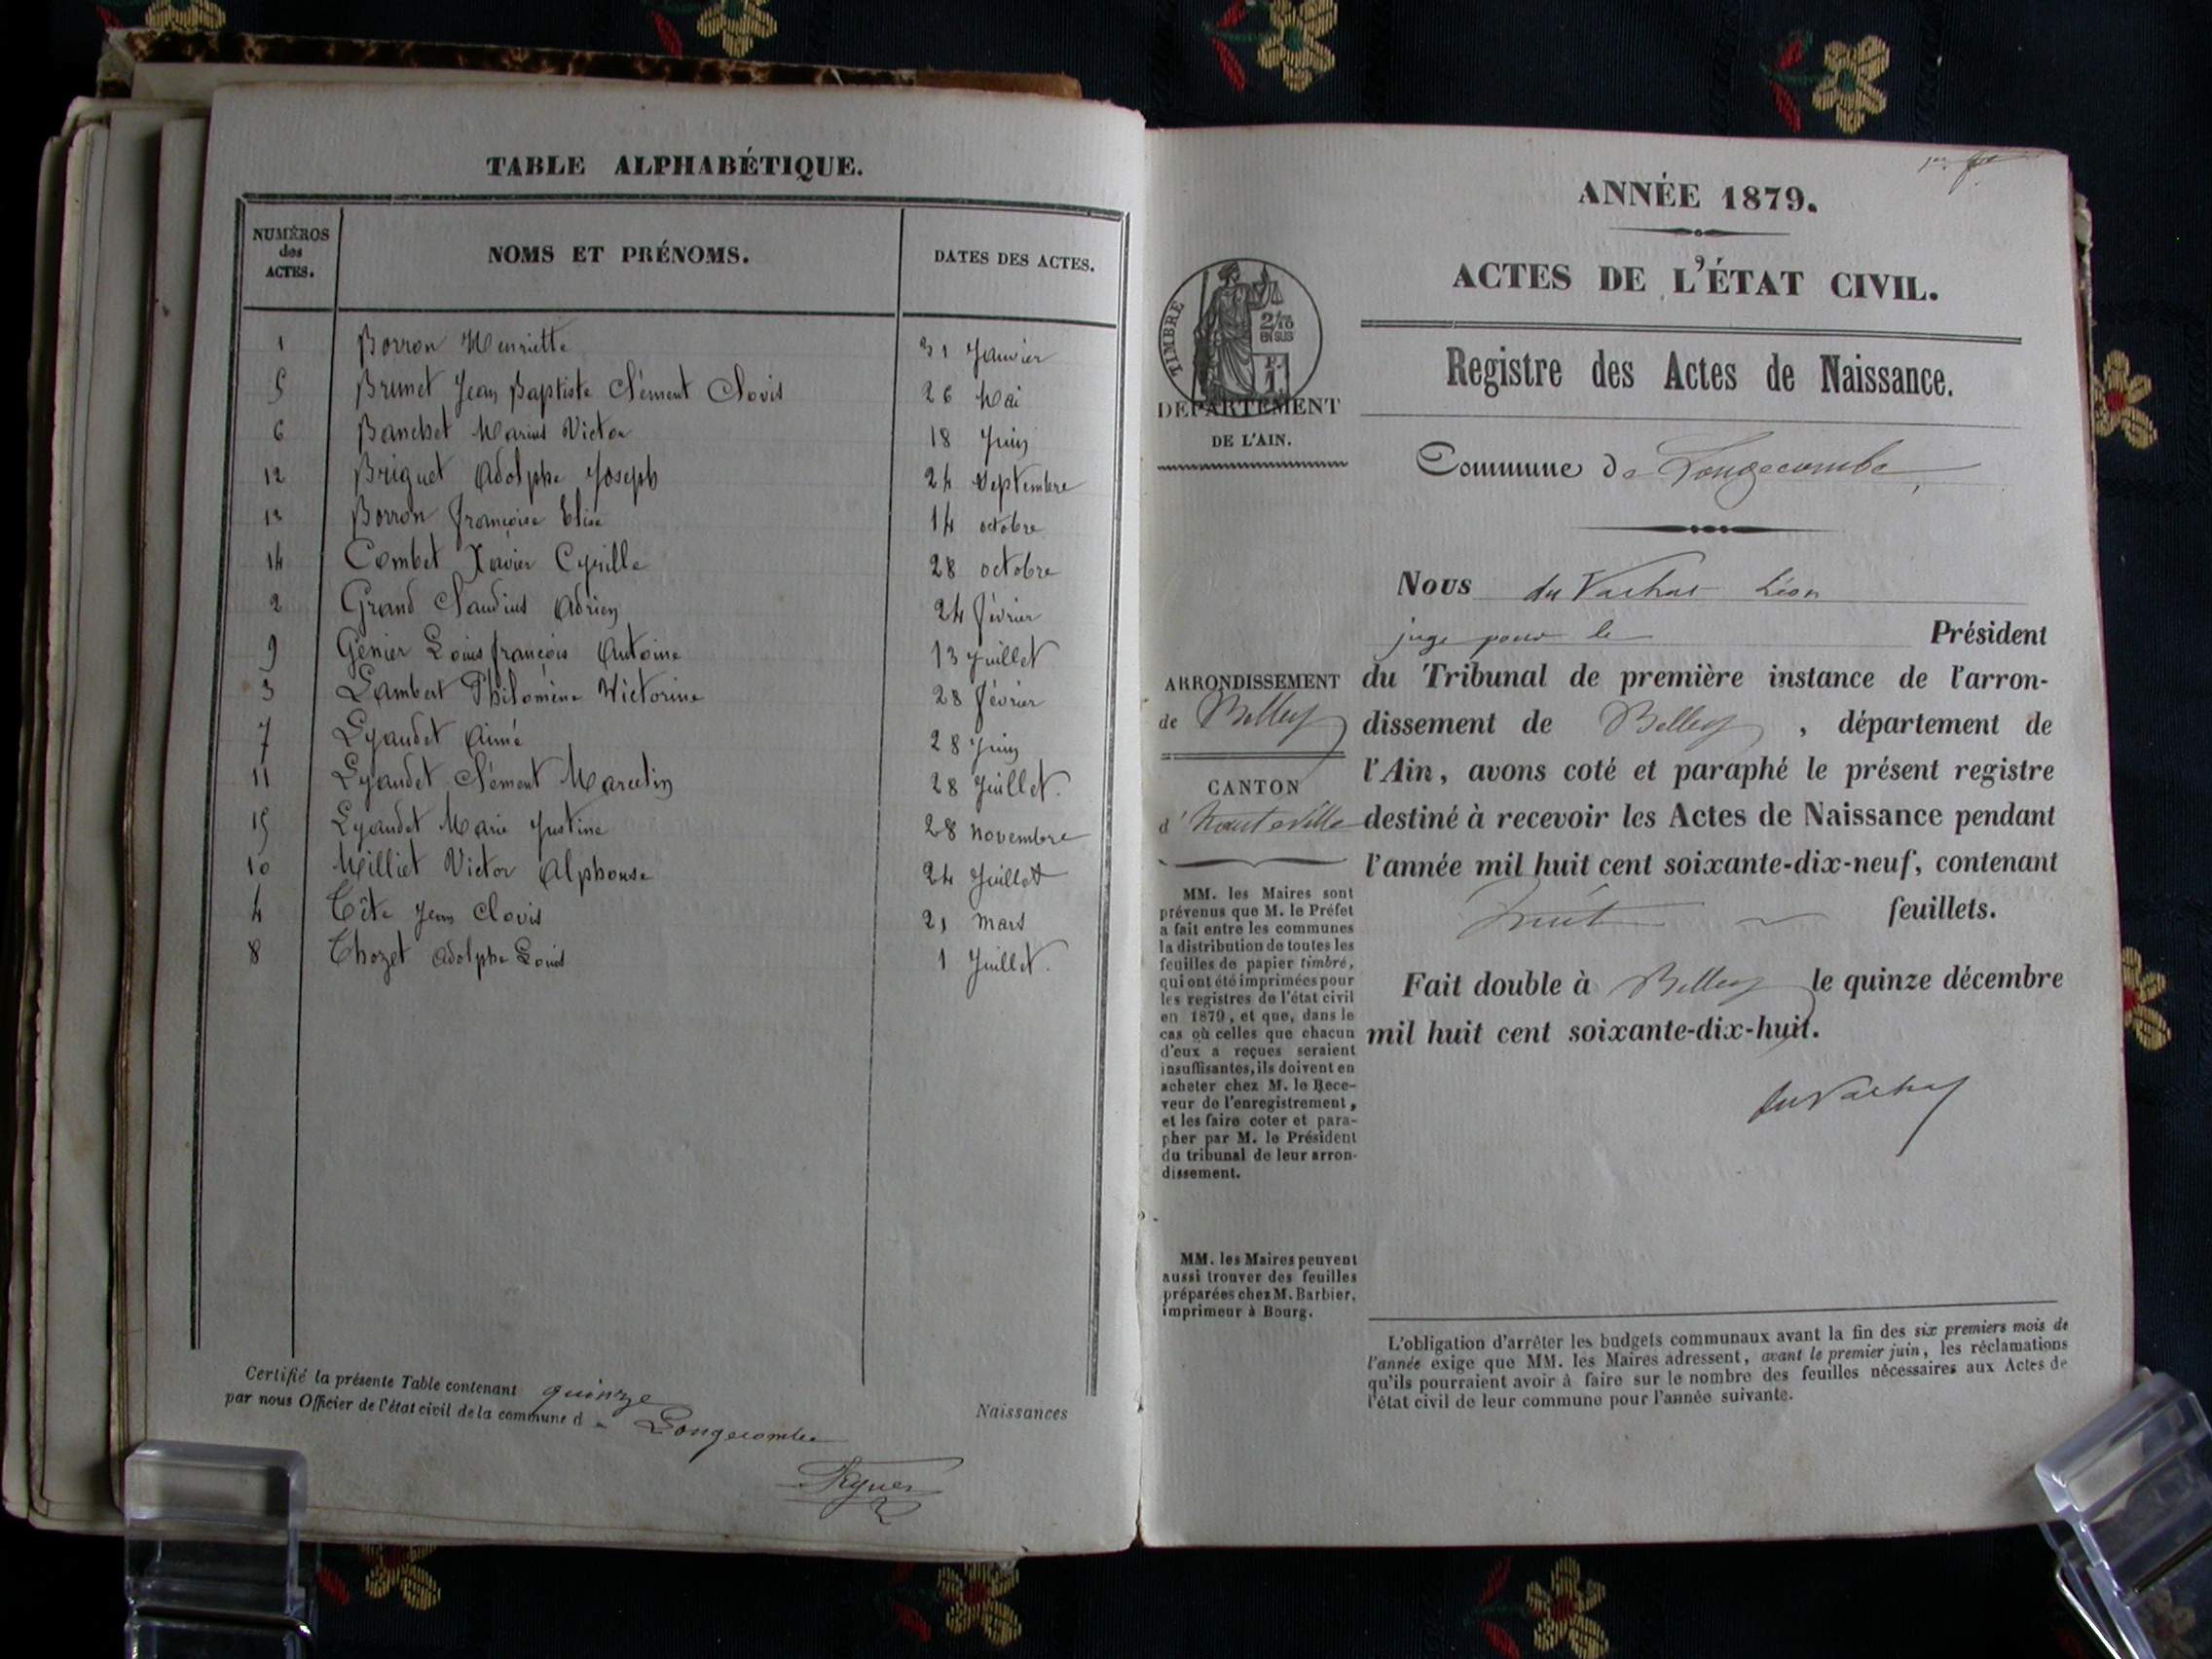 TABLE ALPHABÉTIQUE.
NUMÉROS des ACTES. NOMS ET PRÉNOMS. DATES DES ACTES.
1 Borron Henriette 31 Janvier
5 Brunet Jean Baptiste Clément Clovis 26 Mai
6 Banchet Marius Victor 18 Juin
12 Briguet Adolphe Joseph 24 Septembre
13 Borron françoise Elise 14 octobre
14 Combet Xavier Cyrille 28 octobre
2 Grand Claudius Adrien 24 février
9 Génier Louis françois Antoine 13 Juillet
3 Lambert Philomène Victorine 28 février
7 Lyaudet Aimé 28 Juin
11 Lyaudet Clément Marcelin 28 Juillet.
15 Lyaudet Marie Justine 28 novembre
10 Milliet Victor Alphonse 24 Juillet
4 Tête Jean Clovis 21 mars
8 Thozet Adolphe Louis 1 Juillet.
Certifié la présente Table contenant quinze Naissances
par nous Officier de l'état civil de la commune de Longecombe
ANNÉE 1879.
ACTES DE L'ÉTAT CIVIL.
Registre des Actes de Naissance.
Commune de Longecombe,
TIMBRE
2/10
EN SUS
DÉPARTEMENT
DE L'AIN.
ARRONDISSEMENT
de Belley
CANTON
d'hauteville
MM. les Maires sont
prévenus que M. le Préfet
a fait entre les communes
la distribution de toutes les
feuilles de papier timbré,
qui ont été imprimées pour
les registres de l'état civil
en 1879, et que, dans le
cas où celles que chacun
d'eux a reçues seraient
insuffisantes, ils doivent en
acheter chez M. le Rece-
veur de l'enregistrement,
et les faire coter et para-
pher par M. le Président
du tribunal de leur arron-
dissement.
MM. les Maires peuvent
aussi trouver des feuilles
préparées chez M. Barbier,
imprimeur à Bourg.
Nous du Vachat Léon
juge pour le Président
du Tribunal de première instance de l'arron-
dissement de Belley, département de
l'Ain, avons coté et paraphé le présent registre
destiné à recevoir les Actes de Naissance pendant
l'année mil huit cent soixante-dix-neuf, contenant
huit feuillets.
Fait double à Belley le quinze décembre
mil huit cent soixante-dix-huit.
du Vachat
L'obligation d'arrêter les budgets communaux avant la fin des six premiers mois de
l'année exige que MM. les Maires adressent, avant le premier juin, les réclamations
qu'ils pourraient avoir à faire sur le nombre des feuilles nécessaires aux Actes de
l'état civil de leur commune pour l'année suivante.